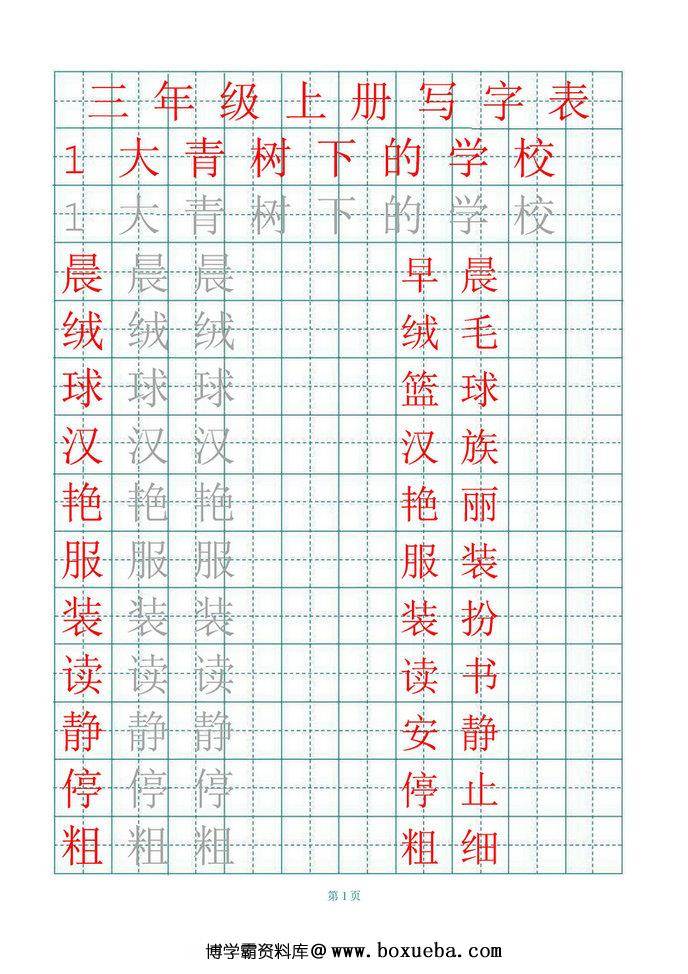 三年级上册写字表
1 大青树下的学校
1 大青树下的学校
晨 晨 晨 早晨
绒 绒 绒 绒毛
球 球 球 篮球
汉 汉 汉 汉族
艳 艳 艳 艳丽
服 服 服 服装
装 装 装 装扮
读 读 读 读书
静 静 静 安静
停 停 停 停止
粗 粗 粗 粗细
第 1 页
博学霸资料库@ www.boxueba.com